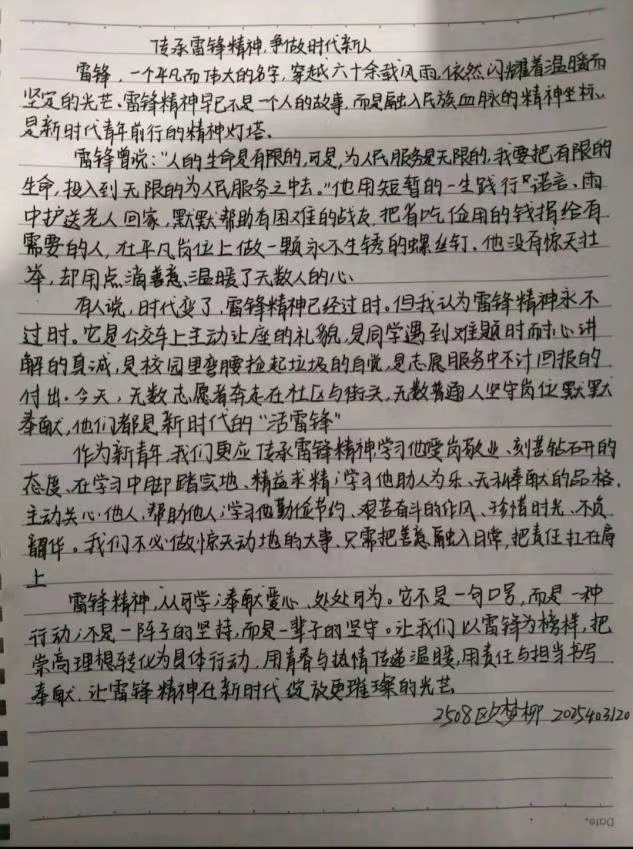 传承雷锋精神,争做时代新人
雷锋,一个平凡而伟大的名字,穿越六十余载风雨,依然闪耀着温暖而
坚定的光芒、雷锋精神早已不是一个人的故事,而是融入民族血脉的精神坐标、
是新时代青年前行的精神灯塔、
雷锋曾说:"人的生命是有限的,可是,为人民服务是无限的,我要把有限的
生命,投入到无限的为人民服务之中去。"他用短暂的一生践行诺言、雨
中护送老人回家,默默帮助有困难的战友,把省吃俭用的钱捐给有
需要的人,在平凡岗位上做一颗永不生锈的螺丝钉、他没有惊天壮
举,却用点滴善意、温暖了无数人的心、
有人说,时代变了,雷锋精神已经过时。但我认为雷锋精神永不
过时。它是公交车上主动让座的礼貌,是同学遇到难题时耐心讲
解的真诚,是校园里弯腰捡起垃圾的自觉,是志愿服务中不计回报的
付出。今天,无数志愿者奔走在社区与街头,无数普通人坚守岗位默默
奉献,他们都是新时代的"活雷锋"
作为新青年,我们更应传承雷锋精神,学习他爱岗敬业、刻苦钻研的
态度、在学习中脚踏实地、精益求精;学习他助人为乐、无私奉献的品格,
主动关心他人,帮助他人;学习他勤俭节约、艰苦奋斗的作风、珍惜时光、不负
韶华。我们不必做惊天动地的大事,只需把善意融入日常,把责任扛在肩
上
雷锋精神,人人可学;奉献爱心、处处可为。它不是一句口号,而是一种
行动;不是一阵子的坚持,而是一辈子的坚守。让我们以雷锋为榜样,把
崇高理想转化为具体行动,用青春与热情传递温暖,用责任与担当书写
奉献,让雷锋精神在新时代绽放更璀璨的光芒
2508欧梦柳 2025403120
Date.